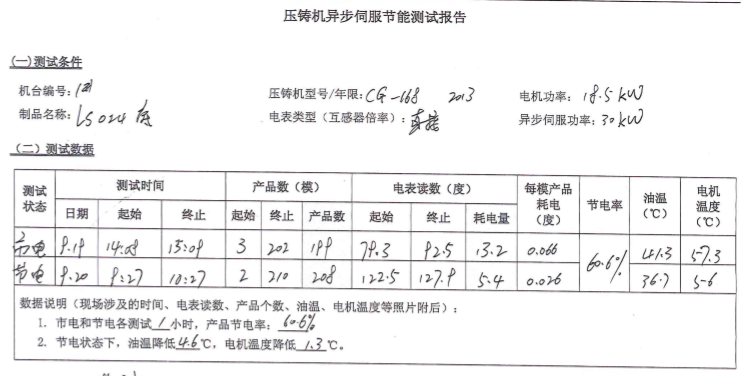 压铸机异步伺服节能测试报告
(一)测试条件
机台编号：1#
压铸机型号/年限：CG-168 2013
电机功率：18.5 KW
制品名称：LS024
电表类型（互感器倍率）：直接
异步伺服功率：30 KW
（二）测试数据
测试状态 测试时间 产品数（模） 电表读数（度） 每模产品耗电（度） 节电率 油温（℃） 电机温度（℃）
日期 起始 终止 起始 终止 产品数 起始 终止 耗电量
市电 9.19 14:08 15:08 3 202 199 79.3 92.5 13.2 0.066 60.6% 41.3 57.3
节电 9.20 9:27 10:27 2 210 208 122.5 127.9 5.4 0.026 36.7 56
数据说明（现场涉及的时间、电表读数、产品个数、油温、电机温度等照片附后）：
1. 市电和节电各测试 1 小时，产品节电率：60.6%
2. 节电状态下，油温降低4.6℃，电机温度降低 1.3℃。